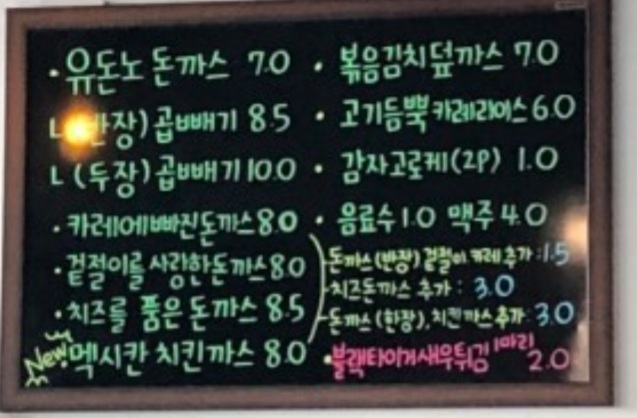 · 유돈노 돈까스 7.0
ㄴ(한장) 곱빼기 8.5
ㄴ(두장) 곱빼기 10.0
· 카레에빠진돈까스 8.0
· 겉절이를 사랑한돈까스 8.0
· 치즈를 품은 돈까스 8.5
New! 멕시칸 치킨까스 8.0
· 볶음김치덮까스 7.0
· 고기듬뿍카레라이스 6.0
· 감자고로케(2P) 1.0
· 음료수 1.0 맥주 4.0
돈까스(반장) 겉절이 카레 추가 : 1.5
치즈돈까스 추가 : 3.0
돈까스(한장), 치킨까스추가 : 3.0
· 블랙타이거새우튀김 1마리 2.0